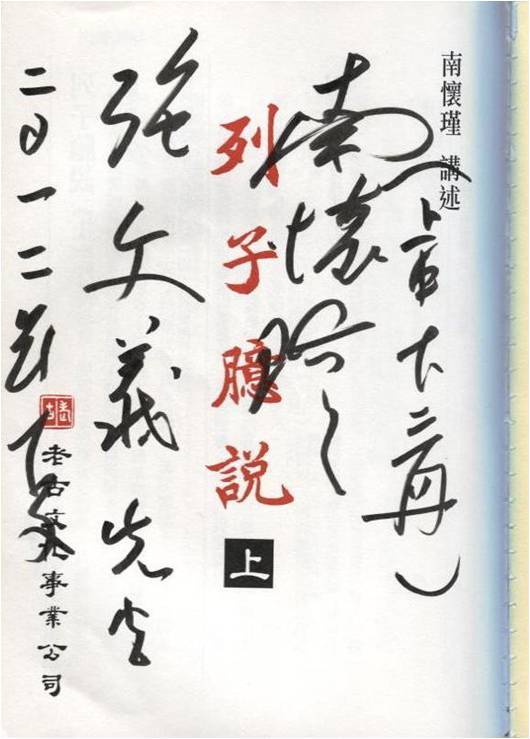 南懷瑾 講述
南懷瑾
列子臆說 上
張文義先生
二〇一二
老古
老古文化事業公司